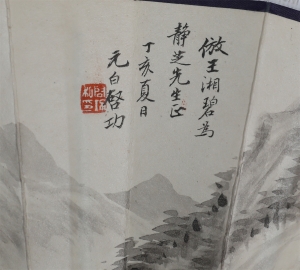 倣王湘碧為
静芝先生正
丁亥夏日
元白啓功